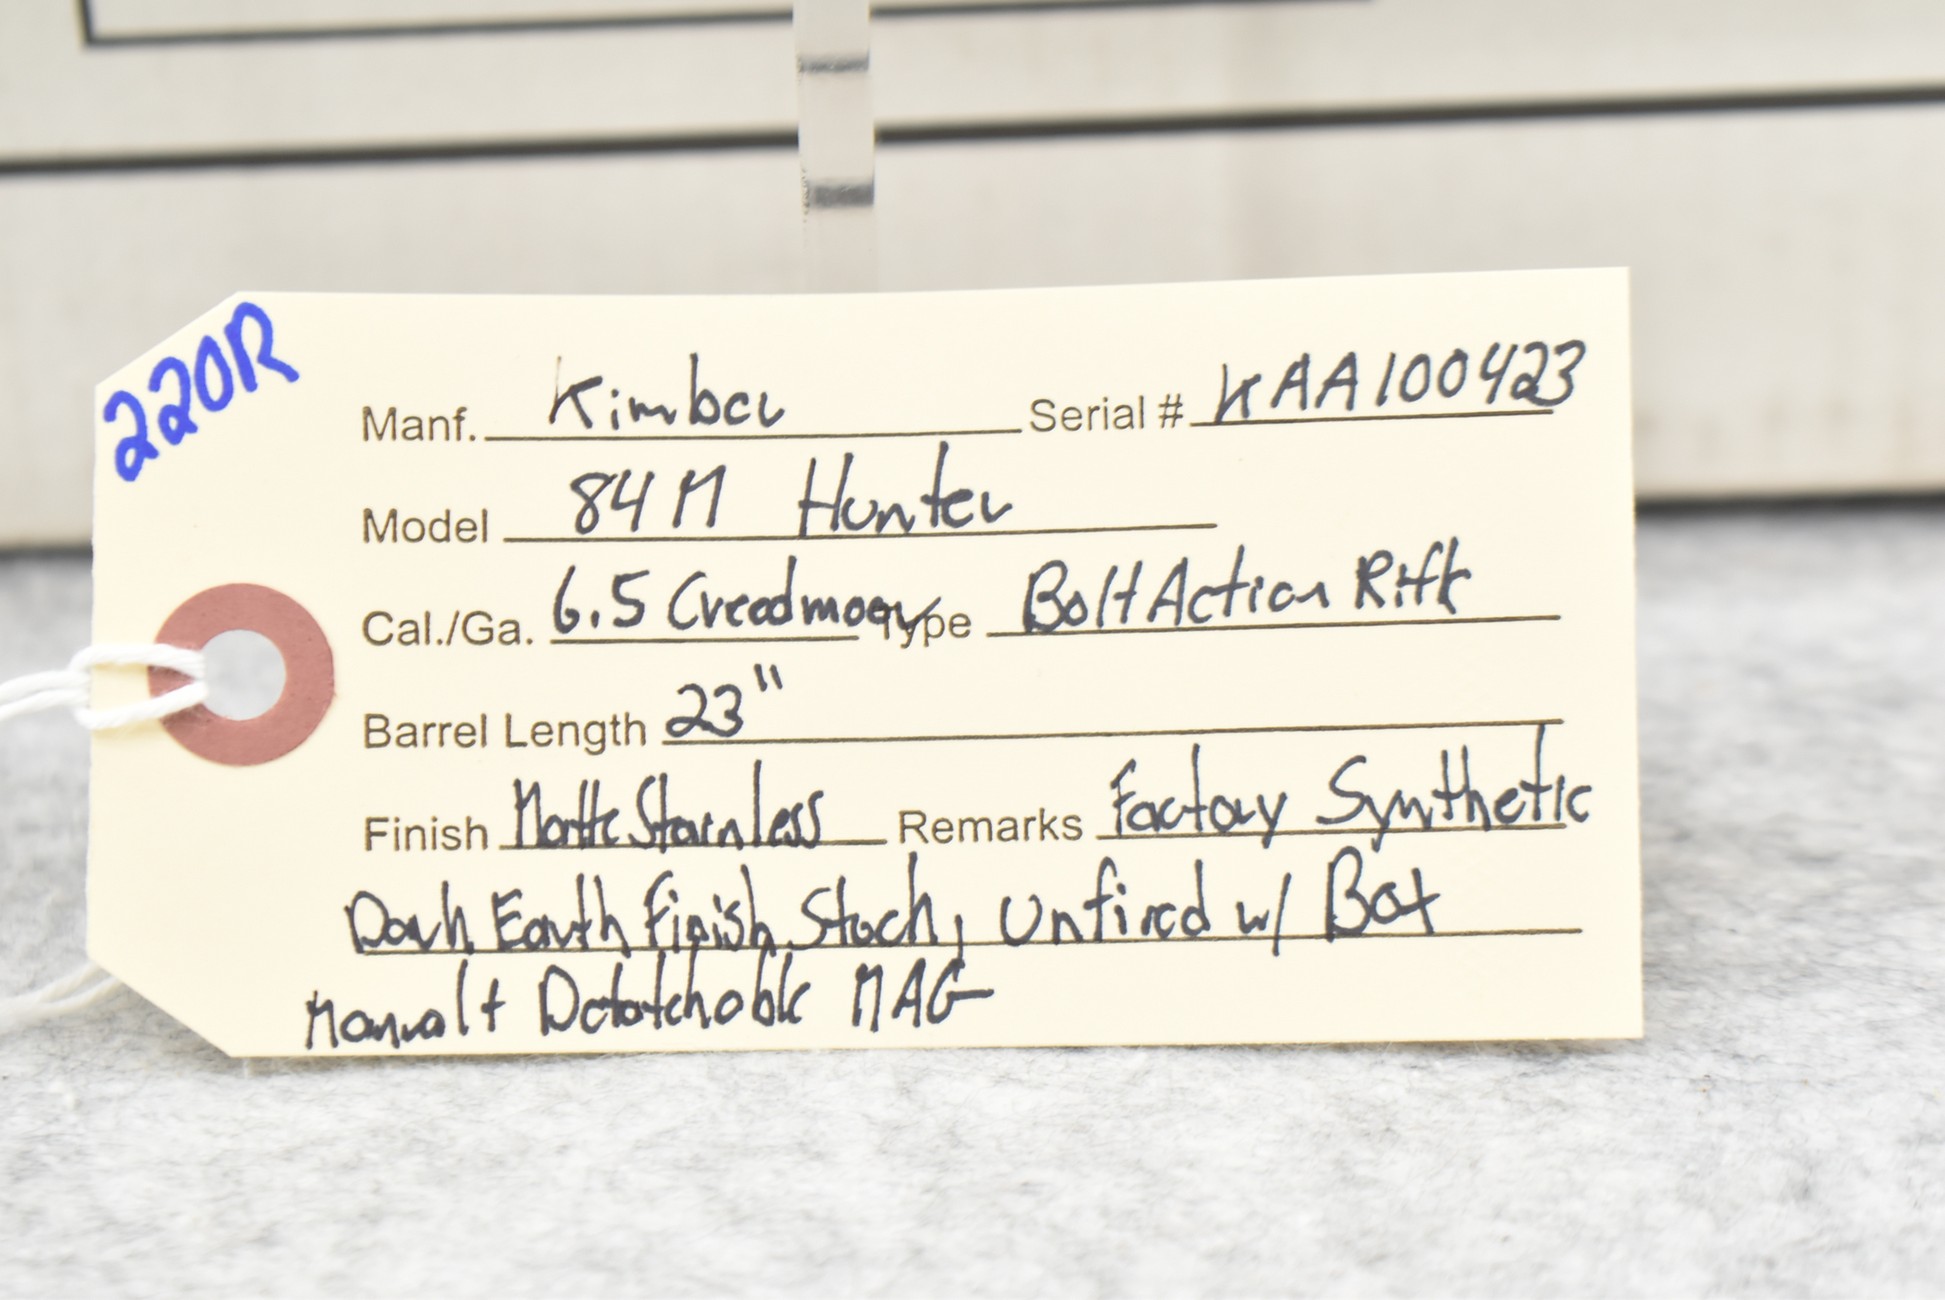 220R
Manf. Kimber Serial # KAA100423
Model 84M Hunter
Cal./Ga. 6.5 Creedmoor Type Bolt Action Rifle
Barrel Length 23"
Finish Matte Stainless Remarks Factory Synthetic
Dark Earth Finish Stock, Unfired w/ Box
Manual + Detatchable MAG